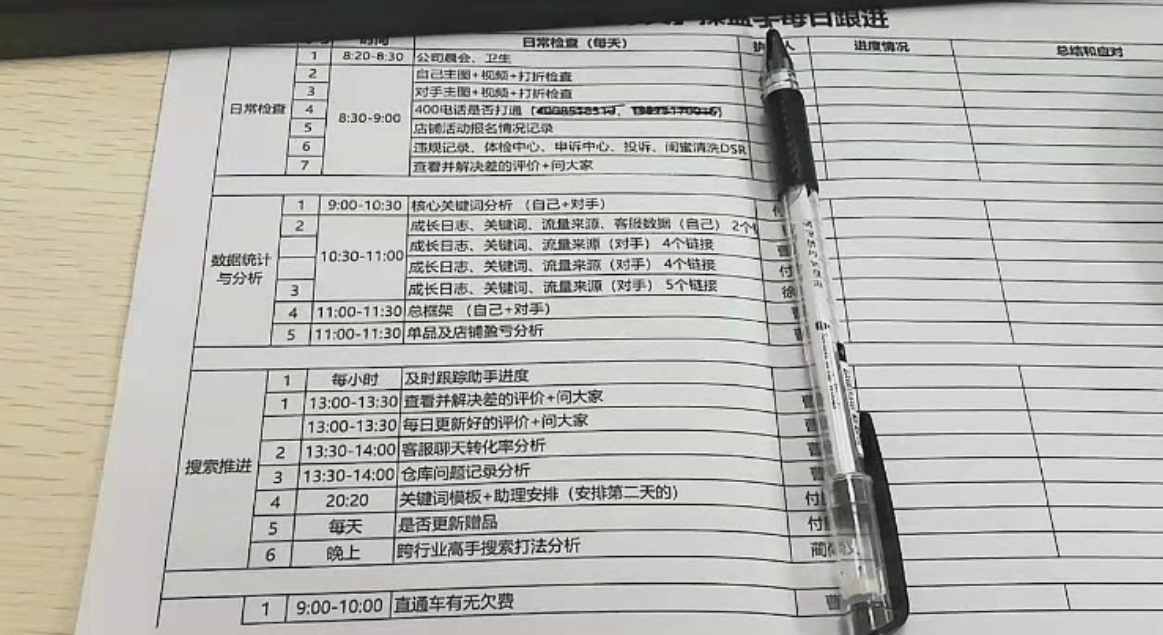 操盘手每日跟进
时间 日常检查（每天） 执 人 进度情况 总结和应对
日常检查
1 8:20-8:30 公司晨会、卫生
2 自己主图+视频+打折检查
3 对手主图+视频+打折检查
4 8:30-9:00 400电话是否打通
5 店铺活动报名情况记录
6 违规记录、体检中心、申诉中心、投诉、闺蜜清洗DSR
7 查看并解决差的评价+问大家
数据统计与分析
1 9:00-10:30 核心关键词分析（自己+对手） 付
2 成长日志、关键词、流量来源、客服数据（自己） 2个
10:30-11:00 成长日志、关键词、流量来源（对手） 4个链接 曹
成长日志、关键词、流量来源（对手） 4个链接 付
3 成长日志、关键词、流量来源（对手） 5个链接 徐
4 11:00-11:30 总框架（自己+对手） 曹
5 11:00-11:30 单品及店铺盈亏分析 曹
搜索推进
1 每小时 及时跟踪助手进度
1 13:00-13:30 查看并解决差的评价+问大家 曹
13:00-13:30 每日更新好的评价+问大家 曹
2 13:30-14:00 客服聊天转化率分析 曹
3 13:30-14:00 仓库问题记录分析 曹
4 20:20 关键词模板+助理安排（安排第二天的） 付
5 每天 是否更新赠品 付
6 晚上 跨行业高手搜索打法分析 蔺
1 9:00-10:00 直通车有无欠费 曹